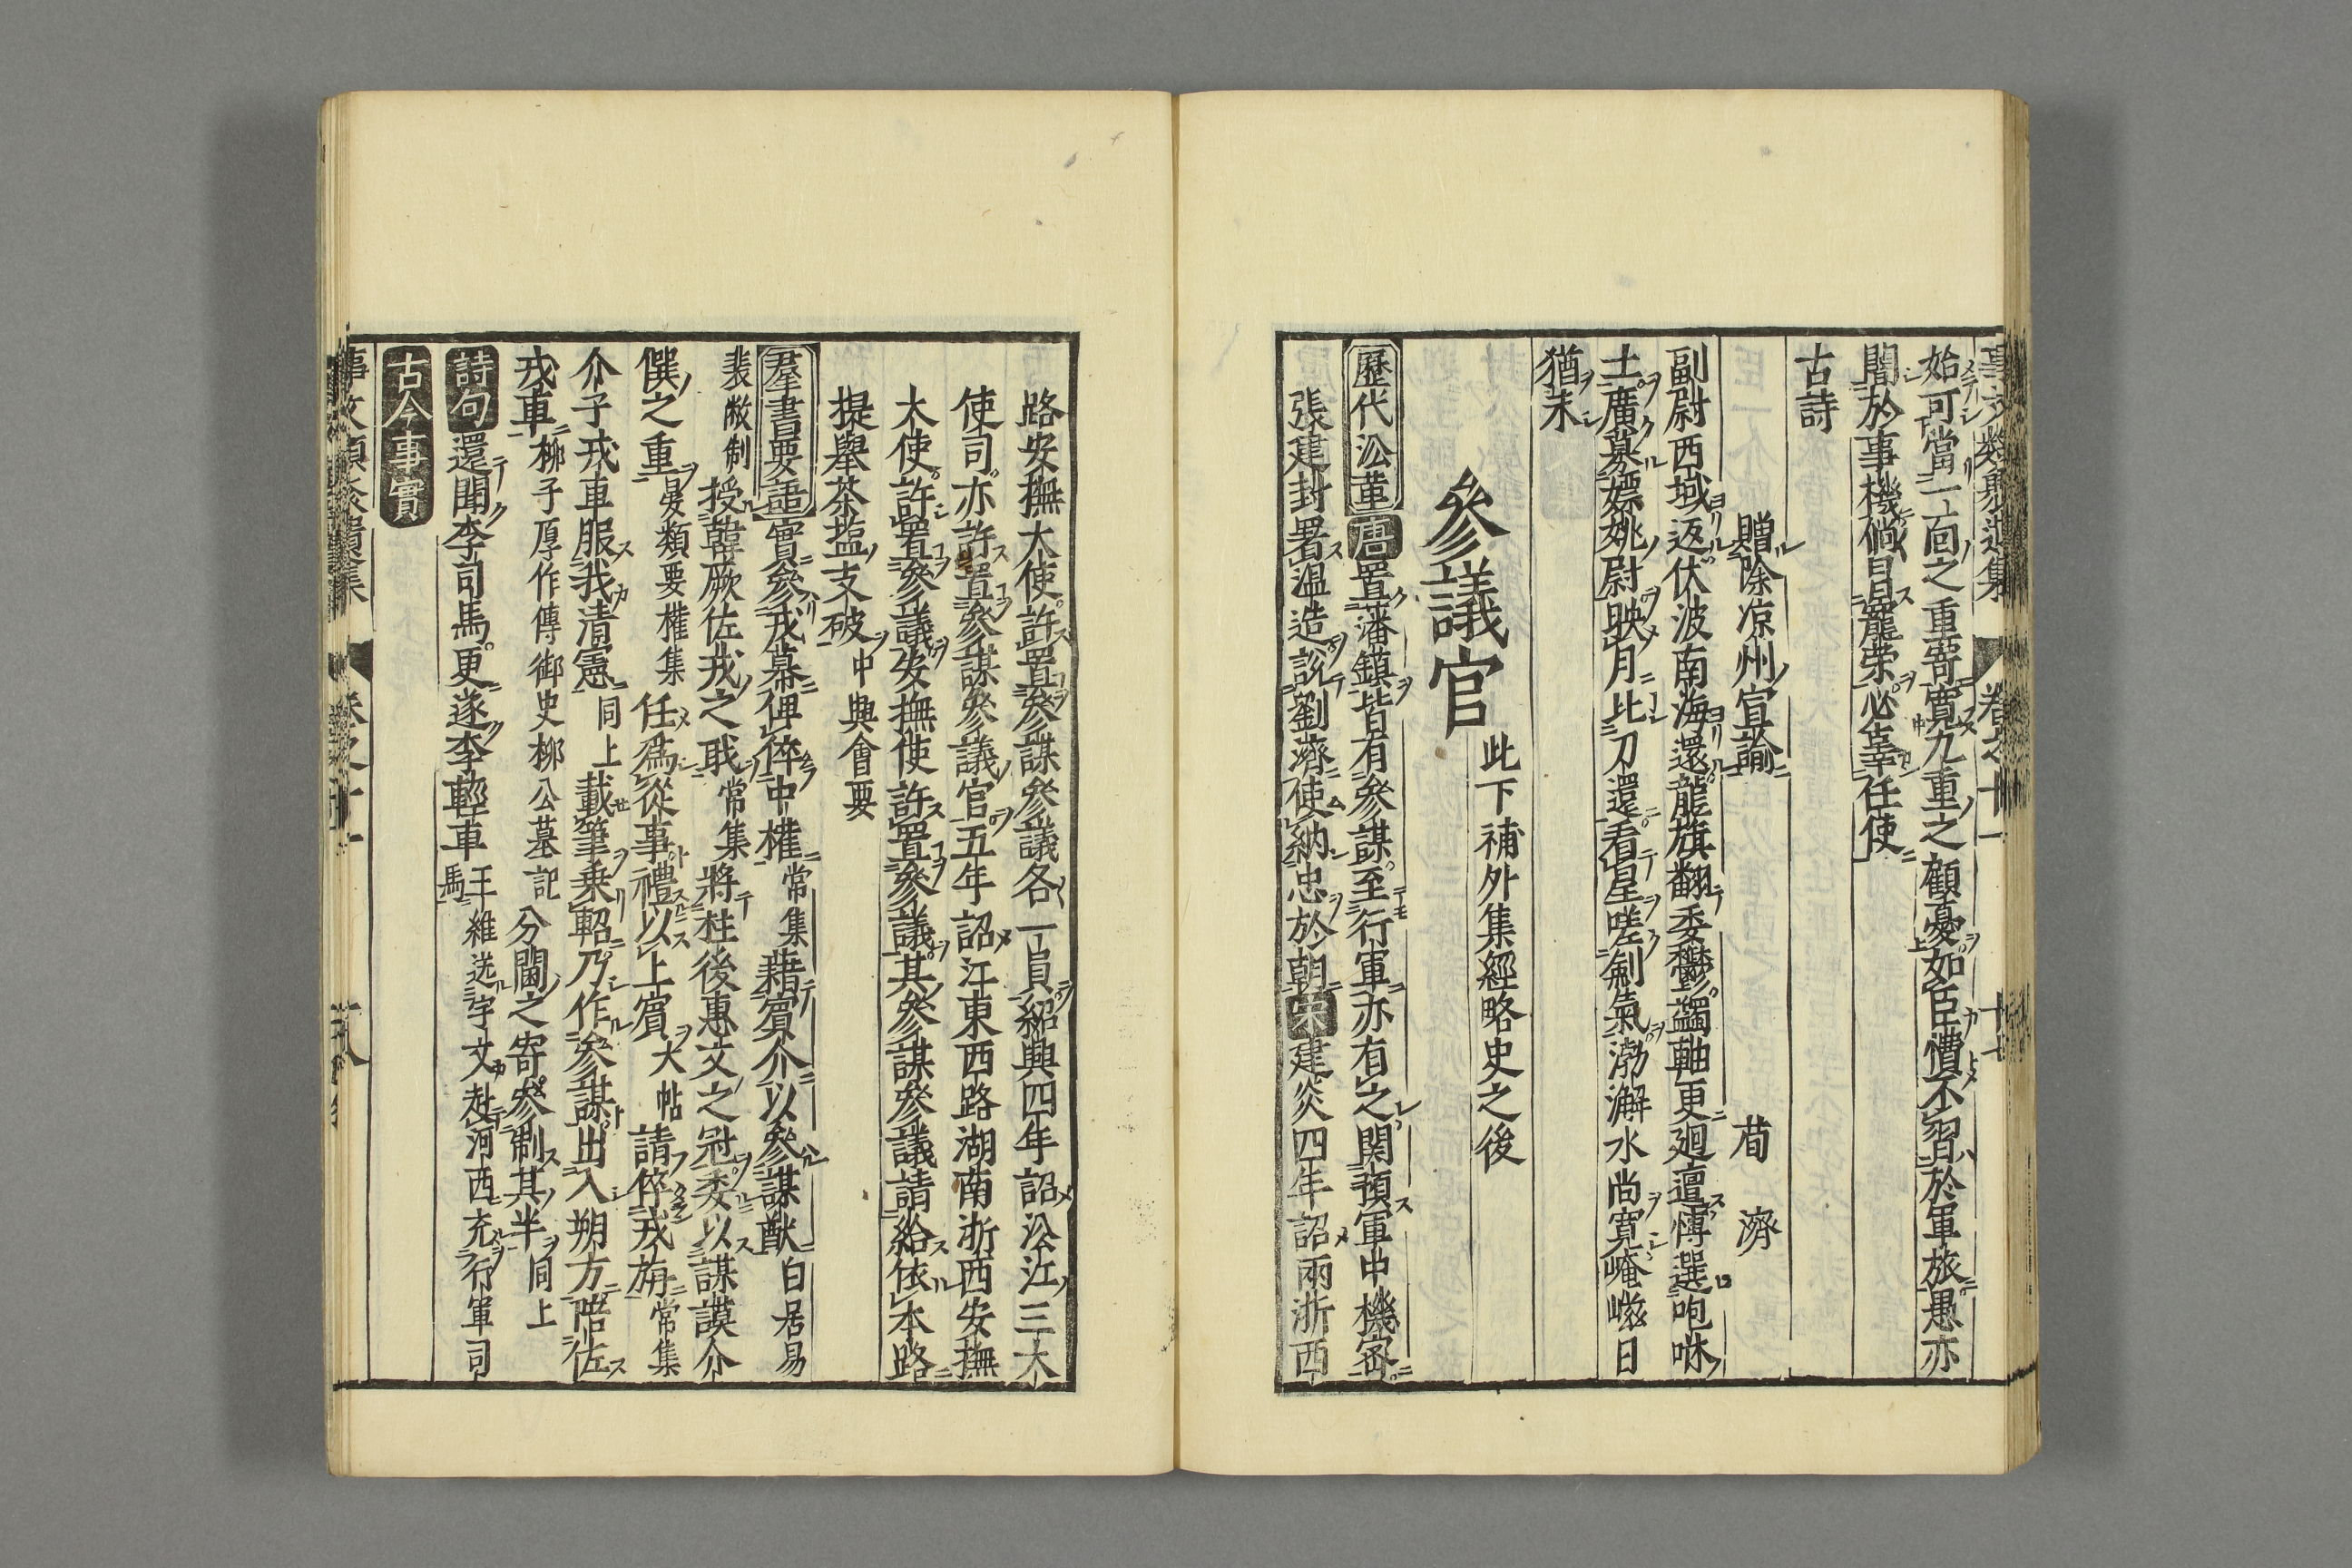 事文類聚遺集 卷之十一 十七
始可當一面之重寄寬九重之顧憂如臣懵不習於軍旅愚亦
闇於事機倘冒寵榮必辜任使
古詩
贈除凉州宣諭 荀濟
副尉西域返伏波南海還龍旗翻委鬱蠲軸更廻邅愽選咆咻
士廣募嫖姚尉映月比刀還看星嗟劍氣渤澥水尚寛崦嵫日
猶未
參議官 此下補外集經略史之後
歷代沿革 唐置藩鎮皆有參謀至行軍亦有之関預軍中機密
張建封署温造説劉濟使納忠於朝宋建炎四年詔兩浙西
路安撫大使許置參謀參議各一員紹興四年詔沿江三大
使司亦許置參謀參議官五年詔江東西路湖南浙西安撫
大使許置參議安撫使許置參議其參謀參議請給依本路
提舉茶塩支破 中興會要
羣書要語 實參戎幕俾倅中權 常集 藉賓介以參謀猷 白居易
裴敞制 授韓厥佐戎之職 常集 將柱後惠文之冠委以謀謨介
僎之重 晏類要權集 任爲從事禮以上賓 大帖 請倅戎旃 常集
介子戎車服我清憲 同上 載筆乗軺乃作參謀出入朔方陪佐
戎車 柳子厚作傳御史柳公墓記 分閫之寄參制其半 同上
詩句 還聞李司馬更逐李輕車 王維送宇文赴河西充行軍司馬
古今事實
事文類聚遺集